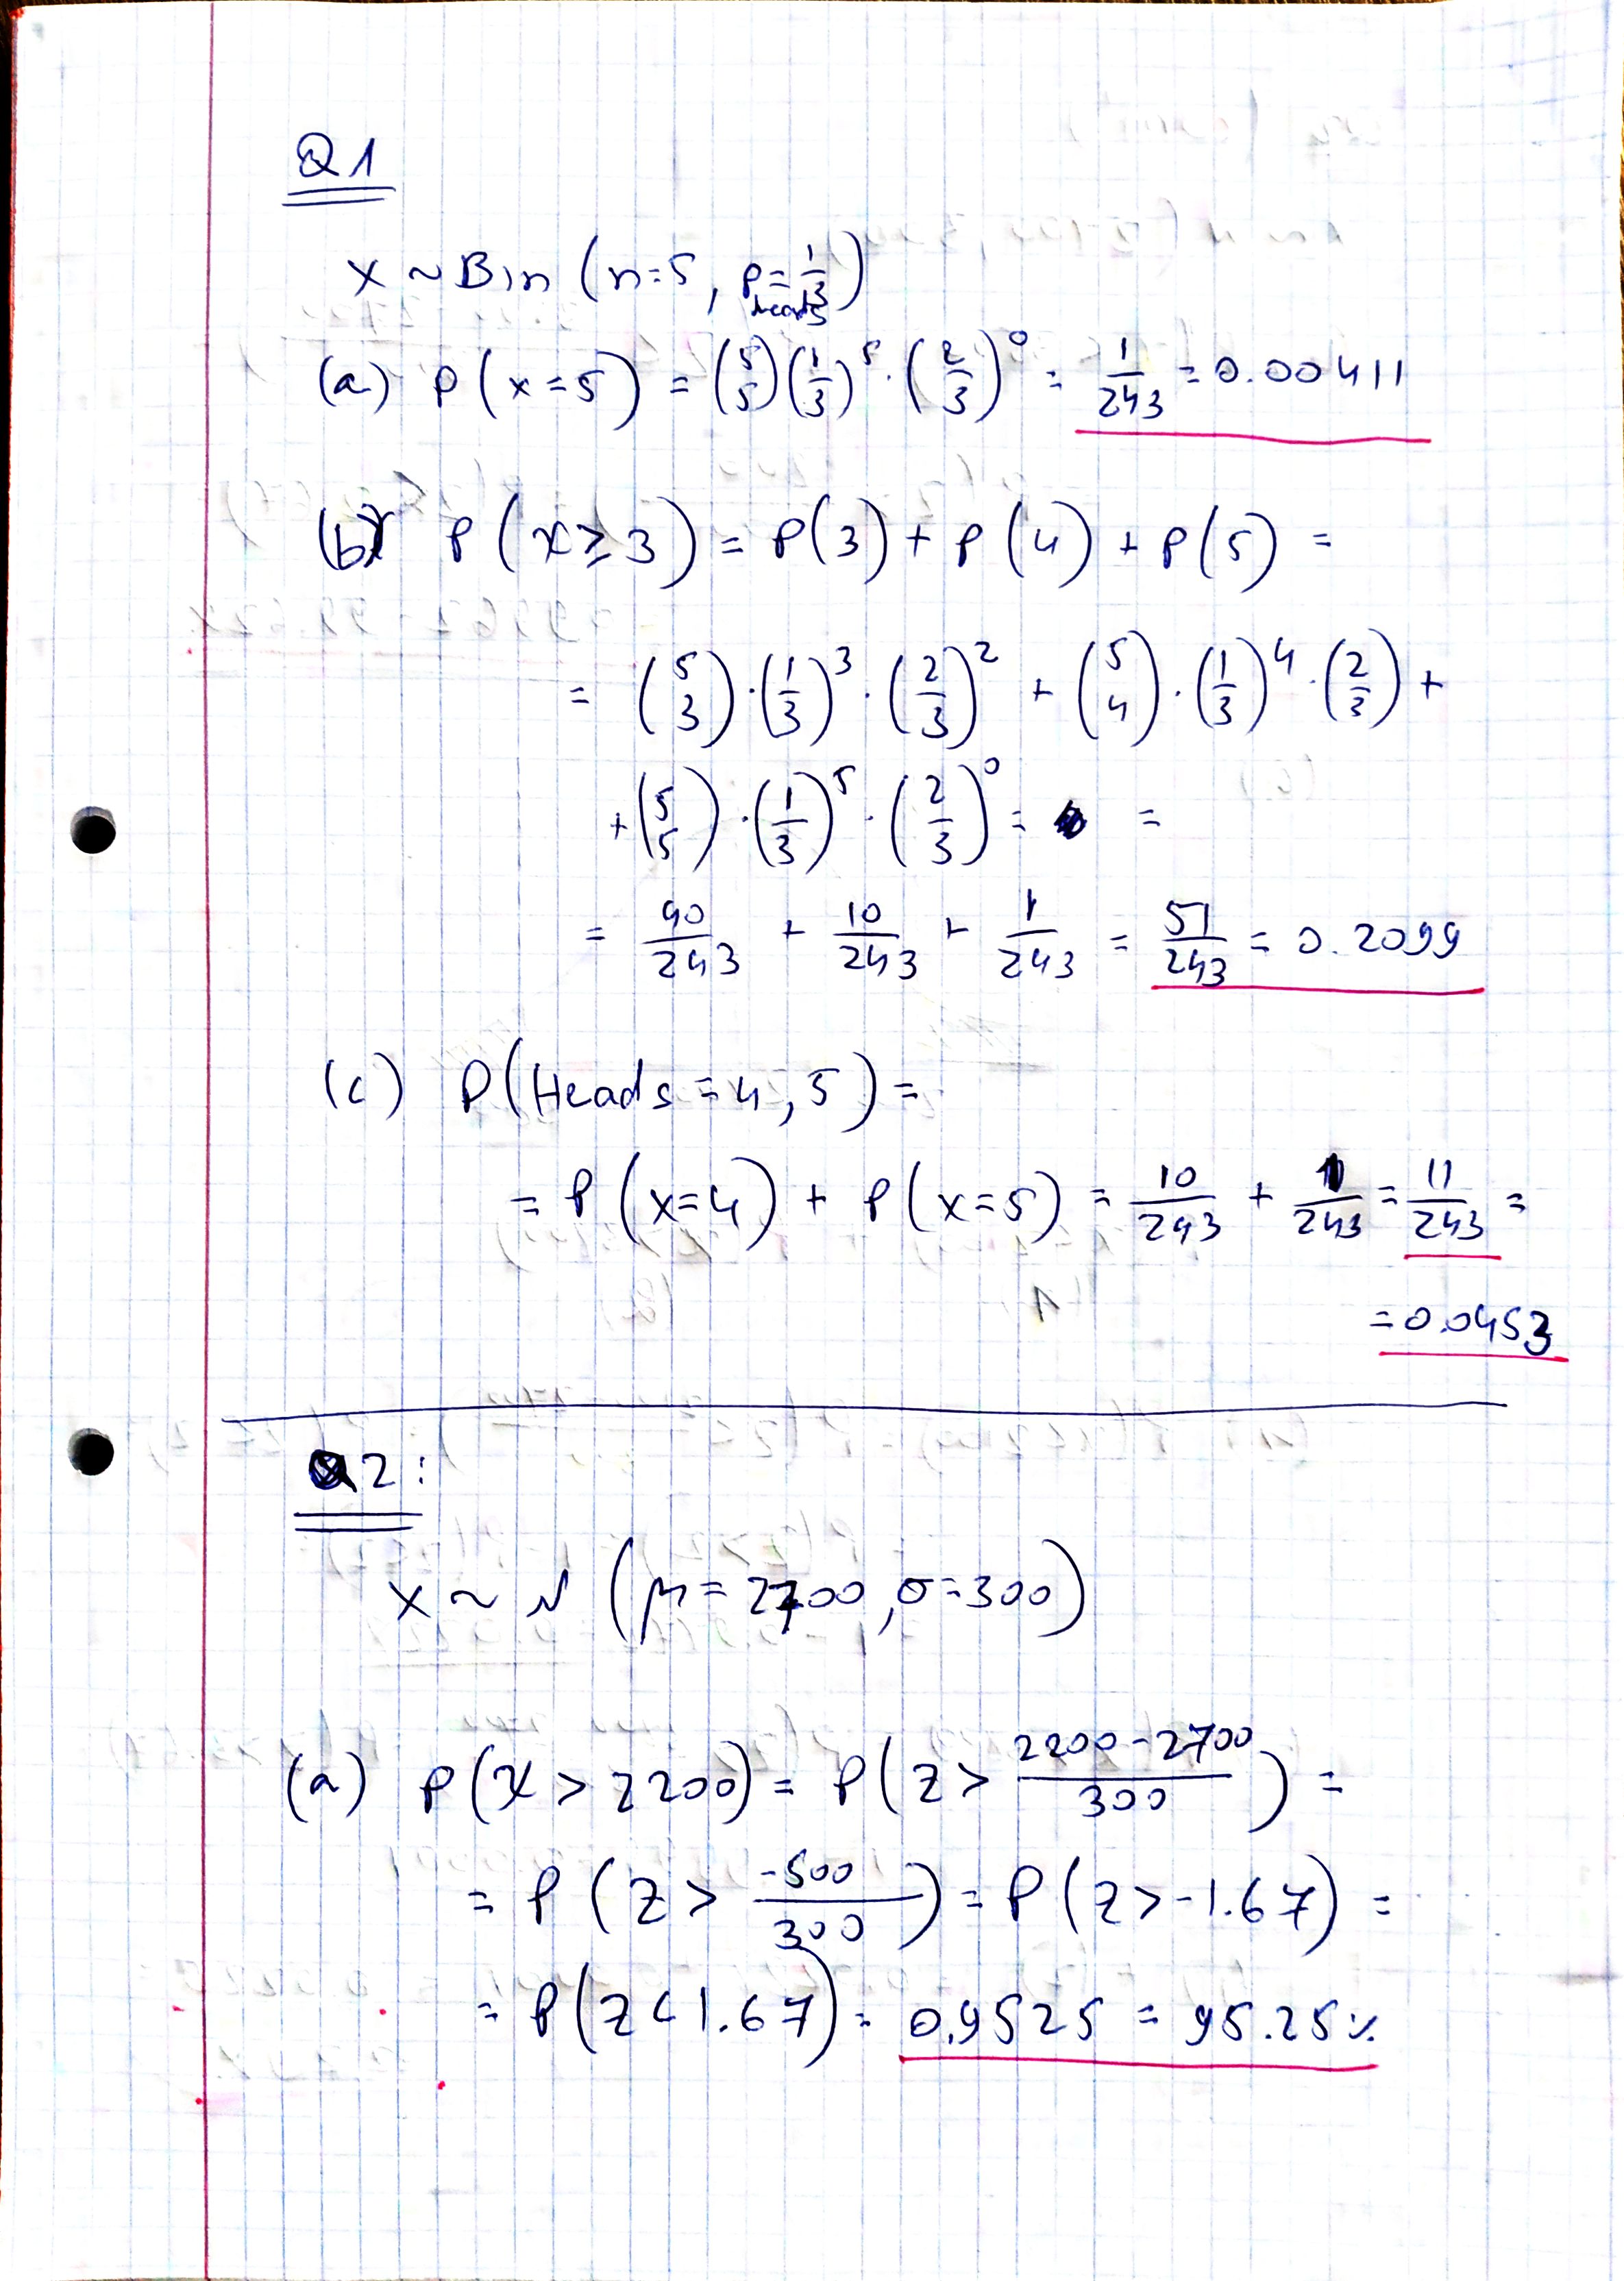 Q1
X ~ Bin (n=5, p=1/3)
heads
(a) P(x=5) = (5 5)(1/3)^5 · (2/3)^0 = 1/243 = 0.00411
(b) P(x≥3) = P(3) + P(4) + P(5) =
= (5 3)·(1/3)^3·(2/3)^2 + (5 4)·(1/3)^4·(2/3) +
+(5 5)·(1/3)^5·(2/3)^0 = =
= 40/243 + 10/243 + 1/243 = 51/243 = 0.2099
(c) P(Heads = 4, 5) =
= P(x=4) + P(x=5) = 10/243 + 1/243 = 11/243 =
= 0.0453
Q2:
X ~ N (μ = 2700, σ = 300)
(a) P(X > 2200) = P(Z > (2200-2700)/300) =
= P(Z > -500/300) = P(Z > -1.67) =
= P(Z < 1.67) = 0.9525 = 95.25%